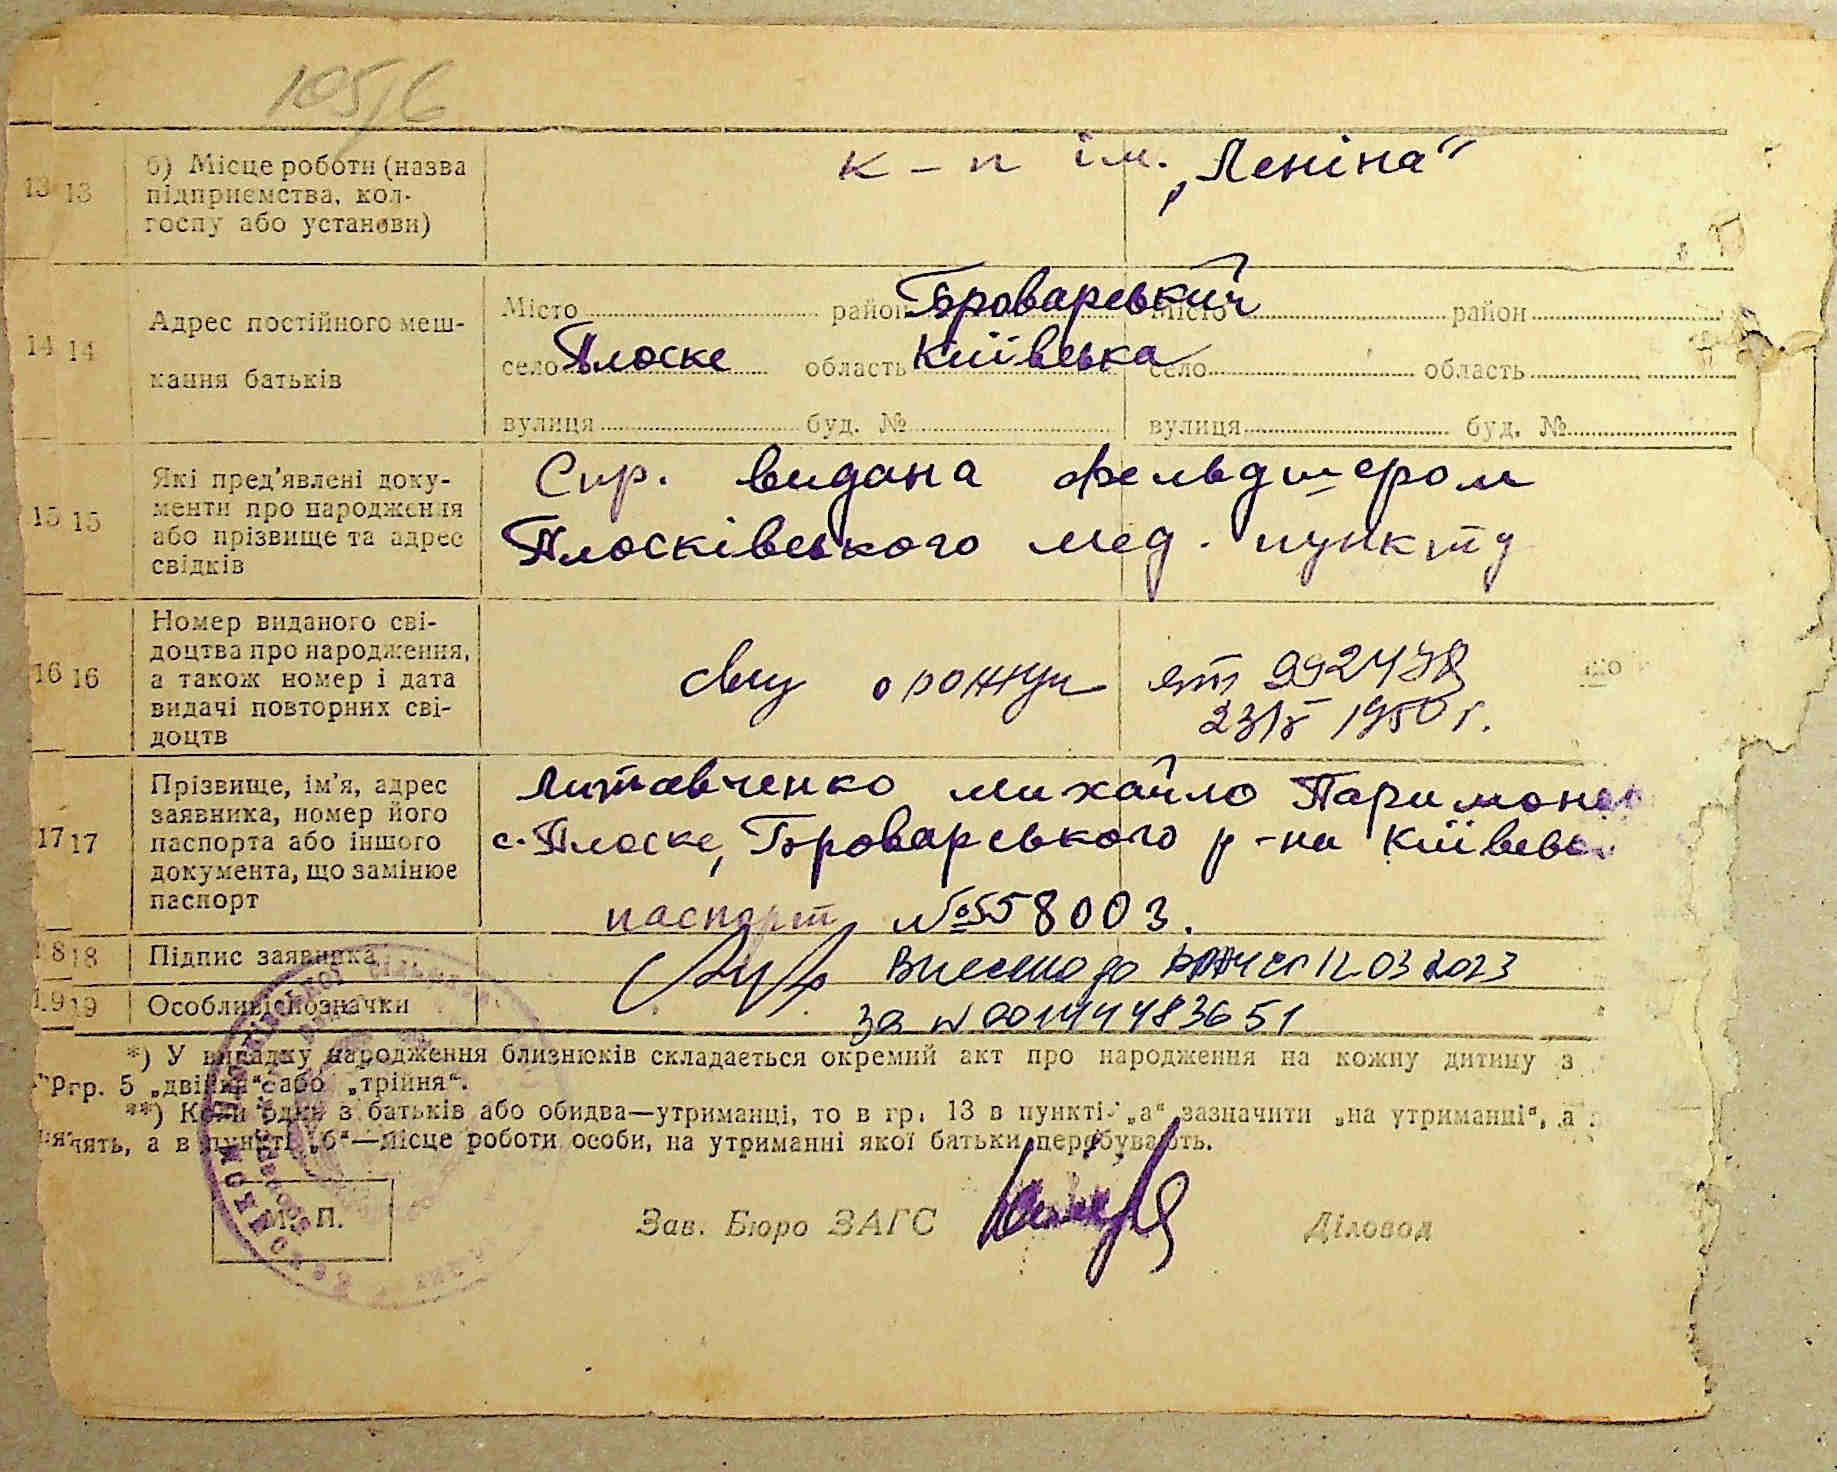 105/6
13 13 б) Місце роботи (назва підприємства, колгоспу або установи)
к-п ім. „Леніна"
14 14 Адрес постійного мешкання батьків
Місто район Броварський Місто район
село Плоске область Київська село область
вулиця буд. № вулиця буд. №
15 15 Які пред'явлені документи про народження або прізвище та адрес свідків
Спр. видана фельдшером
Плосківського мед. пункту
16 16 Номер виданого свідоцтва про народження, а також номер і дата видачі повторних свідоцтв
1950 г.
17 17 Прізвище, ім'я, адрес заявника, номер його паспорта або іншого документа, що замінює паспорт
Литавченко Михайло Паримон
с. Плоске, Броварського р-на Київсь
паспорт №558003.
18 18 Підпис заявника
Внесено до 12.03 2023
19 19 Особливі позначки
за N 00144483651
*) У випадку народження близнюків складається окремий акт про народження на кожну дитину з
гр. 5 „двійня" або „трійня".
**) Коли один з батьків або обидва—утриманці, то в гр. 13 в пункті „а" зазначити „на утриманні", а
лять, а в пункті „б"—місце роботи особи, на утриманні якої батьки перебувають.
М. П.
Зав. Бюро ЗАГС
Діловод